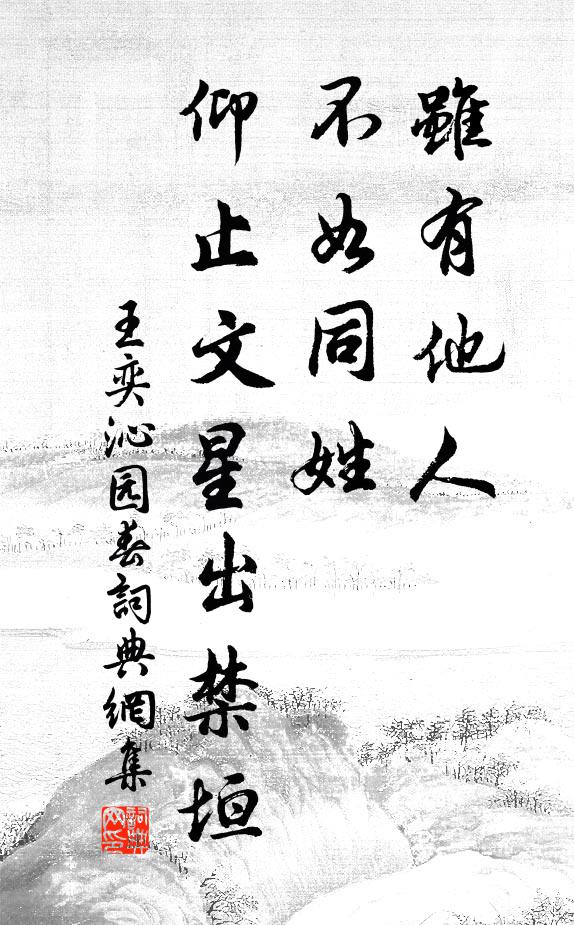 雖有他人
不如同姓
仰止文星出禁垣
王奕沁园春詞典網集
詞典网印